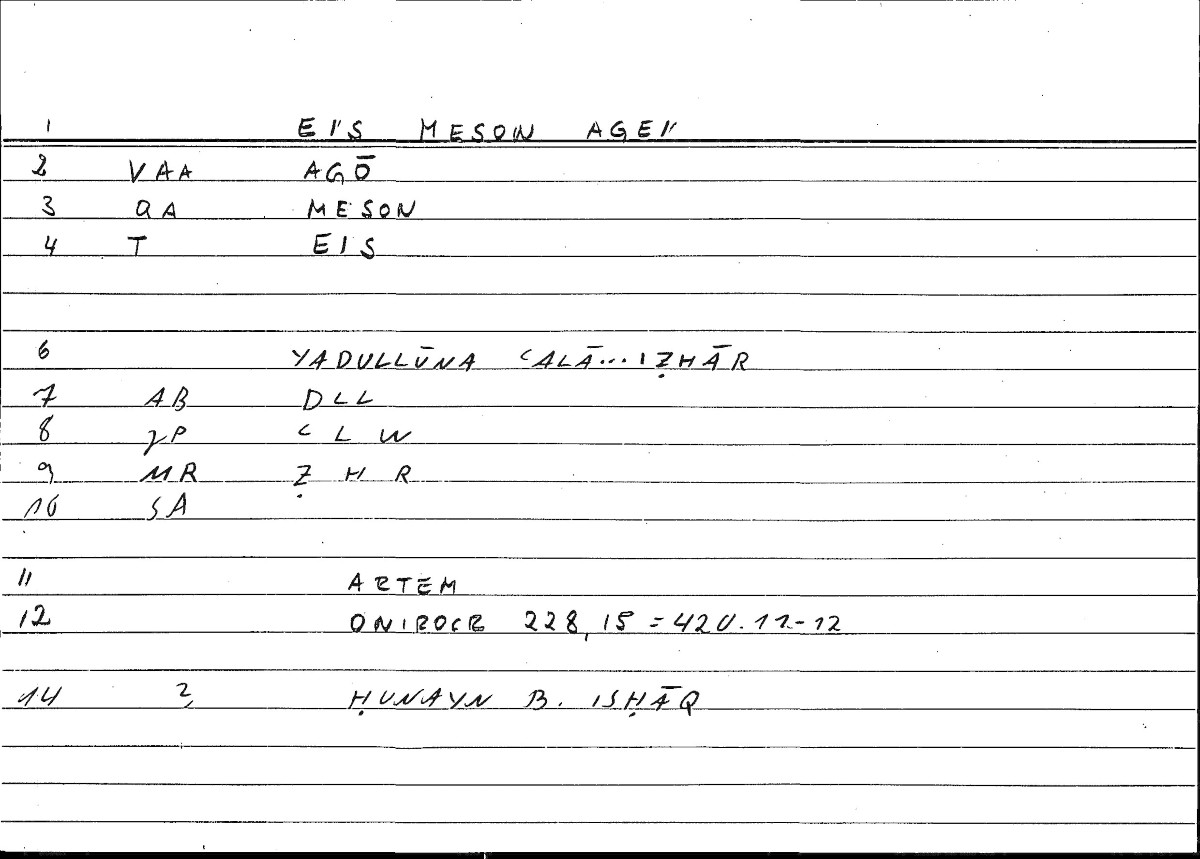 1 EI'S MESON AGEI'
2 VAA AGŌ
3 QA MESON
4 T EIS
6 YADULLŪNA ʿALĀ...IẒHĀR
7 AB DLL
8 PP ʿLW
9 MR ẒHR
10 SA
11 ARTEM
12 ONIROCR 228,15 = 420.11-12
14 2, ḤUNAYN B. ISḤĀQ